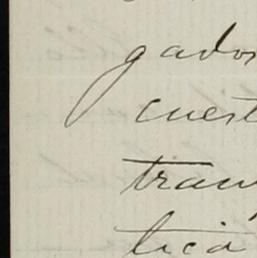 gados
cuest
tran
tica